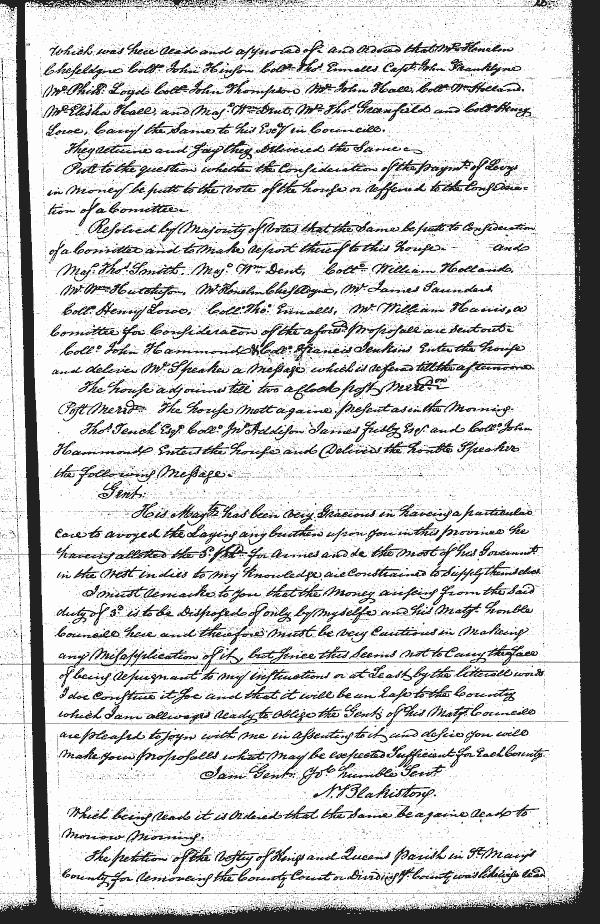 Which was here read and approved of: and Ordered that Mr. Kenelm
Cheseldyne Collo. John Hinson Collo. Tho: Ennalls Capt. John Franklyne
Mr. Phill: Loyd Collo. John Thompson Mr. John Hall, Collo. Wm. Holland.
Mr. Elisha Hall, and Majr. Wm. Dent, Mr. Tho: Greenfield and Collo. Henry
Lowe, Carry the Same to his Exc'y in Councill.
They returne and Say they Delivered the Same
Putt to the question whether the Consideration of the paymt. of Levys
in money be putt to the vote of the house or referred to the Considera-
tion of a Comittee
Resolved by Majority of Votes that the Same be putt to Consideration
of a Comittee and to make report thereof to this house. - and
Majr. Tho: Smith. Majr. Wm. Dent, Collo. William Holland,
Mr. Wm. Hutchison, Mr. Kenelm Cheseldyne, Mr. James Saunders
Collo. Henry Lowe, Collo. Tho: Ennalls, Mr. William Harris, a
Comittee for Consideracon of the aforesd. proposall are sent out:
Collo. John Hammond & Collo. Francis Jenkins Enter the house
and deliver Mr. Speaker a Message which is referred till the afternoone
The house adjourns till two a Clock post Merid.
Post Merid. The house mett againe, present as in the Morning.
Tho: Tench Esqr. Collo. Jno. Addison James Frisby Esqr. and Collo. John
Hammond Enters the house and Delivers the honble Speaker
the following Message.
Gent:
His Majty. has been very Gracious in having a particular
care to avoyed the Laying any burthen upon you in this province he
haveing allotted the 3d. for Armes and the most of his Governmt.
in the West indies to my Knowledge are constrained to Supply themselves
I must remarke to you that the Money arising from the Said
duty of 3d. is to be Disposed of only by myselfe and his Matys. honble
Councill here and therefore must be very Cautious in makeing
any Misapplication of it, but Since this Seems not to Carry the face
of being repugnant to my instructions or at Least by the litterall words
I doe Construe it Soe and that it will be an Ease to the County
which I am allwayes ready to oblige the Gent: of his Matys. Councill
are pleased to Joyn with me in assenting to it and desire you will
make your proposalls what may be expected Sufficient for Each County.
I am Gent: Yor. humble Servt
N: Blakiston.
Which being read it is Ordered that the same be againe read to
morrow Morning.
The petition of the Vestry of Kings and Queens parish in St. Marys
County for removeing the County Court or Dividing ye County was likewise read